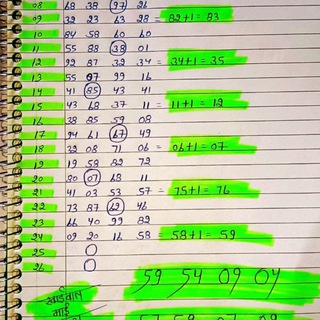 08 68 38 97 26
09 32 23 63 28 = 82+1 = 83
10 84 58 60 60
11 55 88 38 01
12 92 87 32 34 = 34+1 = 35
13 55 07 99 16
14 41 85 43 41
15 43 68 37 11 = 11+1 = 12
16 38 25 59 08
17 94 61 67 49
18 32 08 71 06 = 06+1 = 07
19 19 58 82 72
20 30 07 68 11
21 41 03 53 57 = 75+1 = 76
22 73 87 62 46
23 66 40 99 82
24 09 20 16 58 = 58+1 = 59
25 0
26 0
59 54 09 04
खाईवाल
भाई